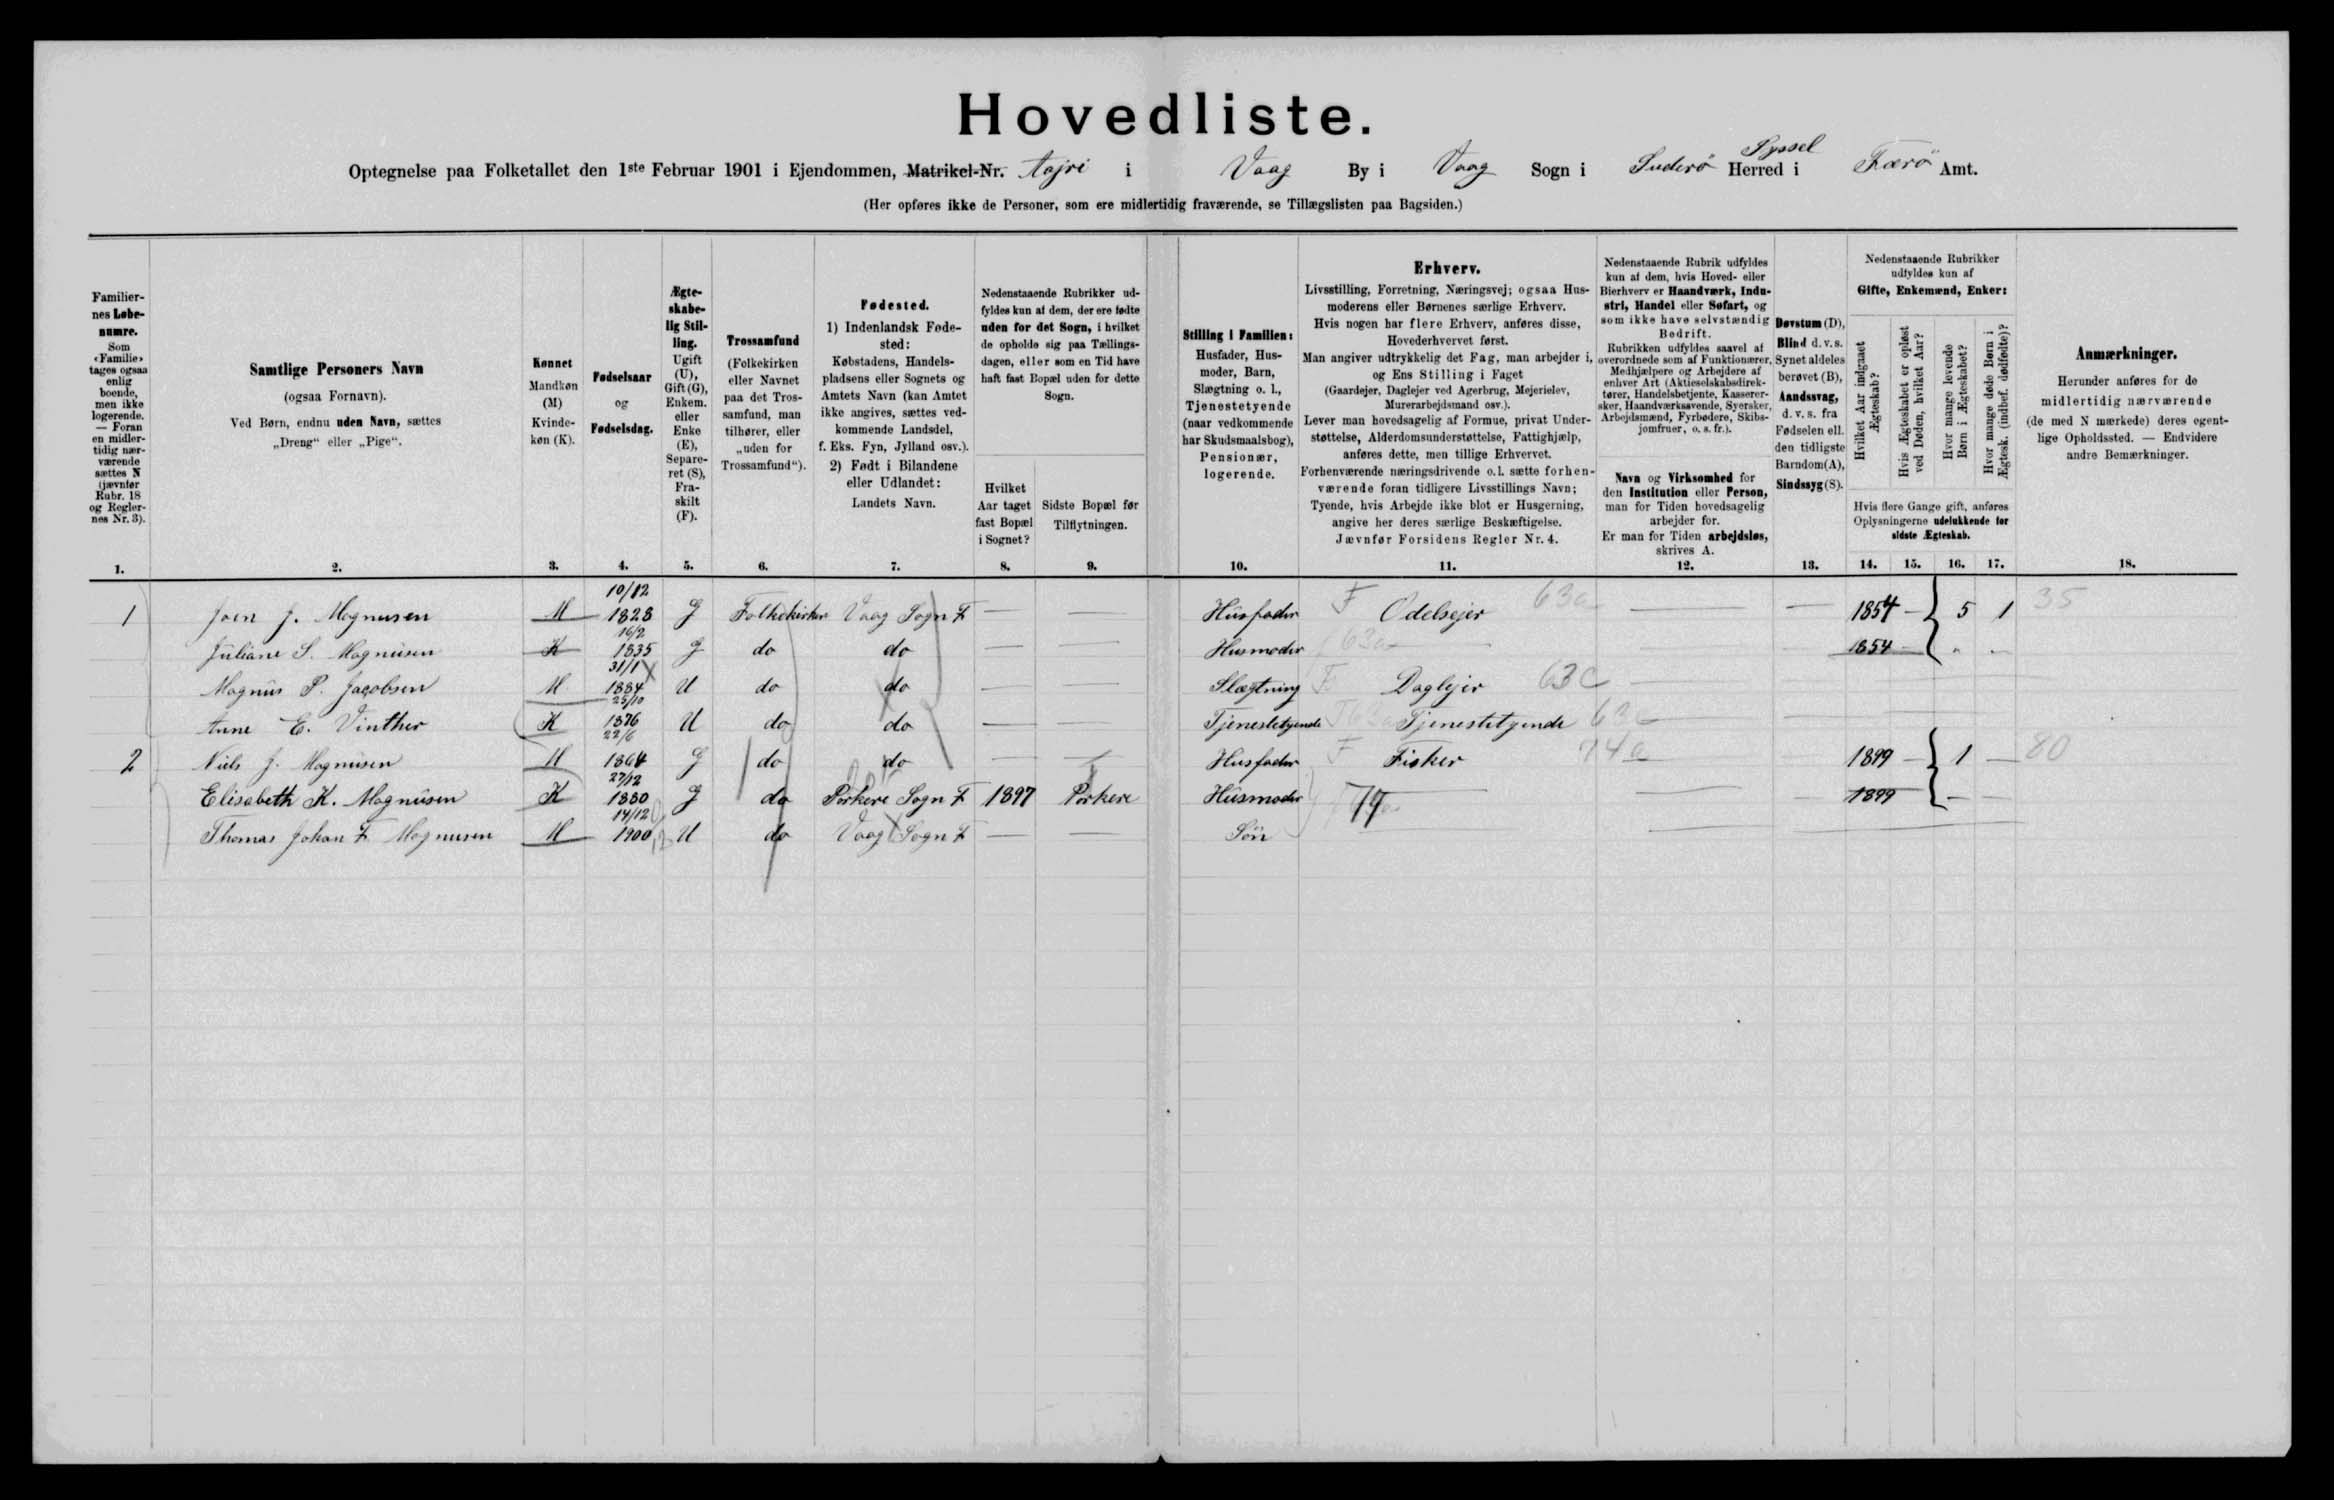 Hovedliste.
Optegnelse paa Folketallet den 1ste Februar 1901 i Ejendommen, Matrikel-Nr. Aajri i Vaag By i Vaag Sogn i Suderö Syssel Herred i Færö Amt.
(Her opføres ikke de Personer, som ere midlertidig fraværende, se Tillægslisten paa Bagsiden.)
Familiernes Løbenumre.
Som «Familie» tages ogsaa enlig boende, men ikke logerende. — Foran en midlertidig nærværende sættes N (jævnfør Rubr. 18 og Reglernes Nr. 3).
Samtlige Personers Navn
(ogsaa Fornavn).
Ved Børn, endnu uden Navn, sættes
„Dreng“ eller „Pige“.
Kønnet
Mandkøn (M)
Kvindekøn (K).
Fødselsaar
og
Fødselsdag.
Ægteskabelig Stilling.
Ugift (U), Gift (G), Enkem. eller Enke (E), Separeret (S), Fraskilt (F).
Trossamfund
(Folkekirken eller Navnet paa det Trossamfund, man tilhører, eller „uden for Trossamfund“).
Fødested.
1) Indenlandsk Fødested:
Købstadens, Handelspladsens eller Sognets og Amtets Navn (kan Amtet ikke angives, sættes vedkommende Landsdel, f. Eks. Fyn, Jylland osv.).
2) Født i Bilandene eller Udlandet:
Landets Navn.
Nedenstaaende Rubrikker udfyldes kun af dem, der ere fødte uden for det Sogn, i hvilket de opholde sig paa Tællingsdagen, eller som en Tid have haft fast Bopæl uden for dette Sogn.
Hvilket Aar taget fast Bopæl i Sognet?
Sidste Bopæl før Tilflytningen.
Stilling i Familien:
Husfader, Husmoder, Barn, Slægtning o. l., Tjenestetyende (naar vedkommende har Skudsmaalsbog), Pensionær, logerende.
Erhverv.
Livsstilling, Forretning, Næringsvej; ogsaa Husmoderens eller Børnenes særlige Erhverv.
Hvis nogen har flere Erhverv, anføres disse, Hovederhvervet først.
Man angiver udtrykkelig det Fag, man arbejder i, og Ens Stilling i Faget
(Gaardejer, Daglejer ved Agerbrug, Mejerielev, Murerarbejdsmand osv.).
Lever man hovedsagelig af Formue, privat Understøttelse, Alderdomsunderstøttelse, Fattighjælp, anføres dette, men tillige Erhvervet.
Forhenværende næringsdrivende o. l. sætte forhenværende foran tidligere Livsstillings Navn;
Tyende, hvis Arbejde ikke blot er Husgerning, angive her deres særlige Beskæftigelse.
Jævnfør Forsidens Regler Nr. 4.
Nedenstaaende Rubrik udfyldes kun af dem, hvis Hoved- eller Bierhverv er Haandværk, Industri, Handel eller Søfart, og som ikke have selvstændig Bedrift.
Rubrikken udfyldes saavel af overordnede som af Funktionærer, Medhjælpere og Arbejdere af enhver Art (Aktieselskabsdirektører, Handelsbetjente, Kasserersker, Haandværkssvende, Syersker, Arbejdsmænd, Fyrbødere, Skibsjomfruer, o. s. fr.).
Navn og Virksomhed for den Institution eller Person, man for Tiden hovedsagelig arbejder for.
Er man for Tiden arbejdsløs, skrives A.
Døvstum (D), Blind d. v. s. Synet aldeles berøvet (B), Aandssvag, d. v. s. fra Fødselen ell. den tidligste Barndom (A), Sindssyg (S).
Nedenstaaende Rubrikker udfyldes kun af
Gifte, Enkemænd, Enker:
Hvilket Aar indgaaet Ægteskab?
Hvis Ægteskabet er opløst ved Døden, hvilket Aar?
Hvor mange levende Børn i Ægteskabet?
Hvor mange døde Børn i Ægtesk. (indbef. dødfødte)?
Hvis flere Gange gift, anføres Oplysningerne udelukkende for sidste Ægteskab.
Anmærkninger.
Herunder anføres for de midlertidig nærværende (de med N mærkede) deres egentlige Opholdssted. — Endvidere andre Bemærkninger.
1. 2. 3. 4. 5. 6. 7. 8. 9. 10. 11. 12. 13. 14. 15. 16. 17. 18.
1 Joen J. Magnusen M 10/12 1828 G Folkekirken Vaag Sogn F — — Husfader F Odelsejer 63a — — 1854 — 5 1 35
Juliane S. Magnusen K 16/2 1835 G do do — — Husmoder 63a — 1854 — " —
Magnus P. Jacobsen M 31/1 1884 U do do — — Slægtning F Daglejer 63c —
Anne E. Vinther K 25/10 1876 U do do — — Tjenestetyende 63a Tjenestetyende
2 Niels J. Magnusen M 22/6 1864 G do do — — Husfader F Fisker 74a — 1899 — 1 — 80
Elisabeth K. Magnusen K 27/12 1880 G do Porkere Sogn F 1897 Porkere Husmoder 74 — 1899 — —
Thomas Johan F. Magnusen M 14/12 1900 U do Vaag Sogn F — — Sön